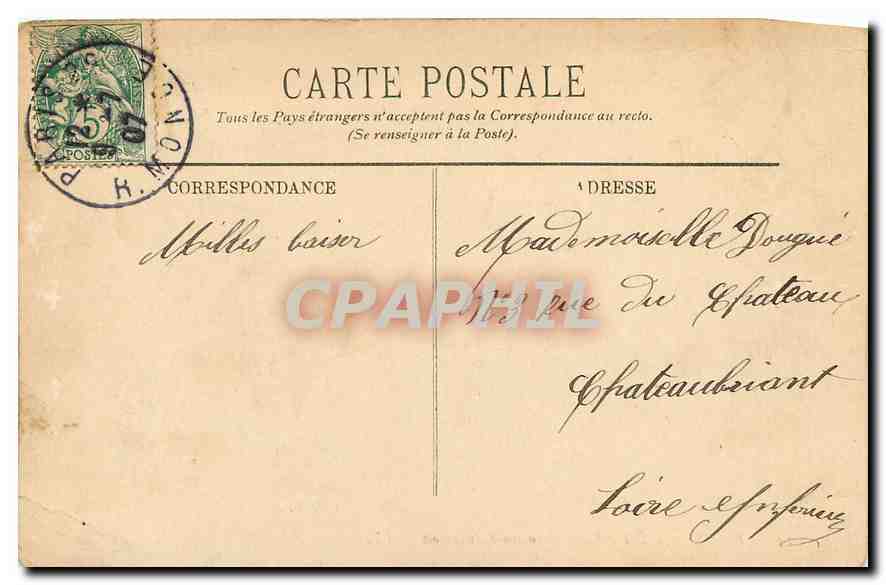 CARTE POSTALE
Tous les Pays étrangers n'acceptent pas la Correspondance au recto.
(Se renseigner à la Poste).
CORRESPONDANCE
ADRESSE
Milles baiser
Mademoiselle Dougué
rue du Chateau
Chateaubriant
Loire Inférieu
5
POSTES
PARIS
12
07
R. MON
CPAPHIL